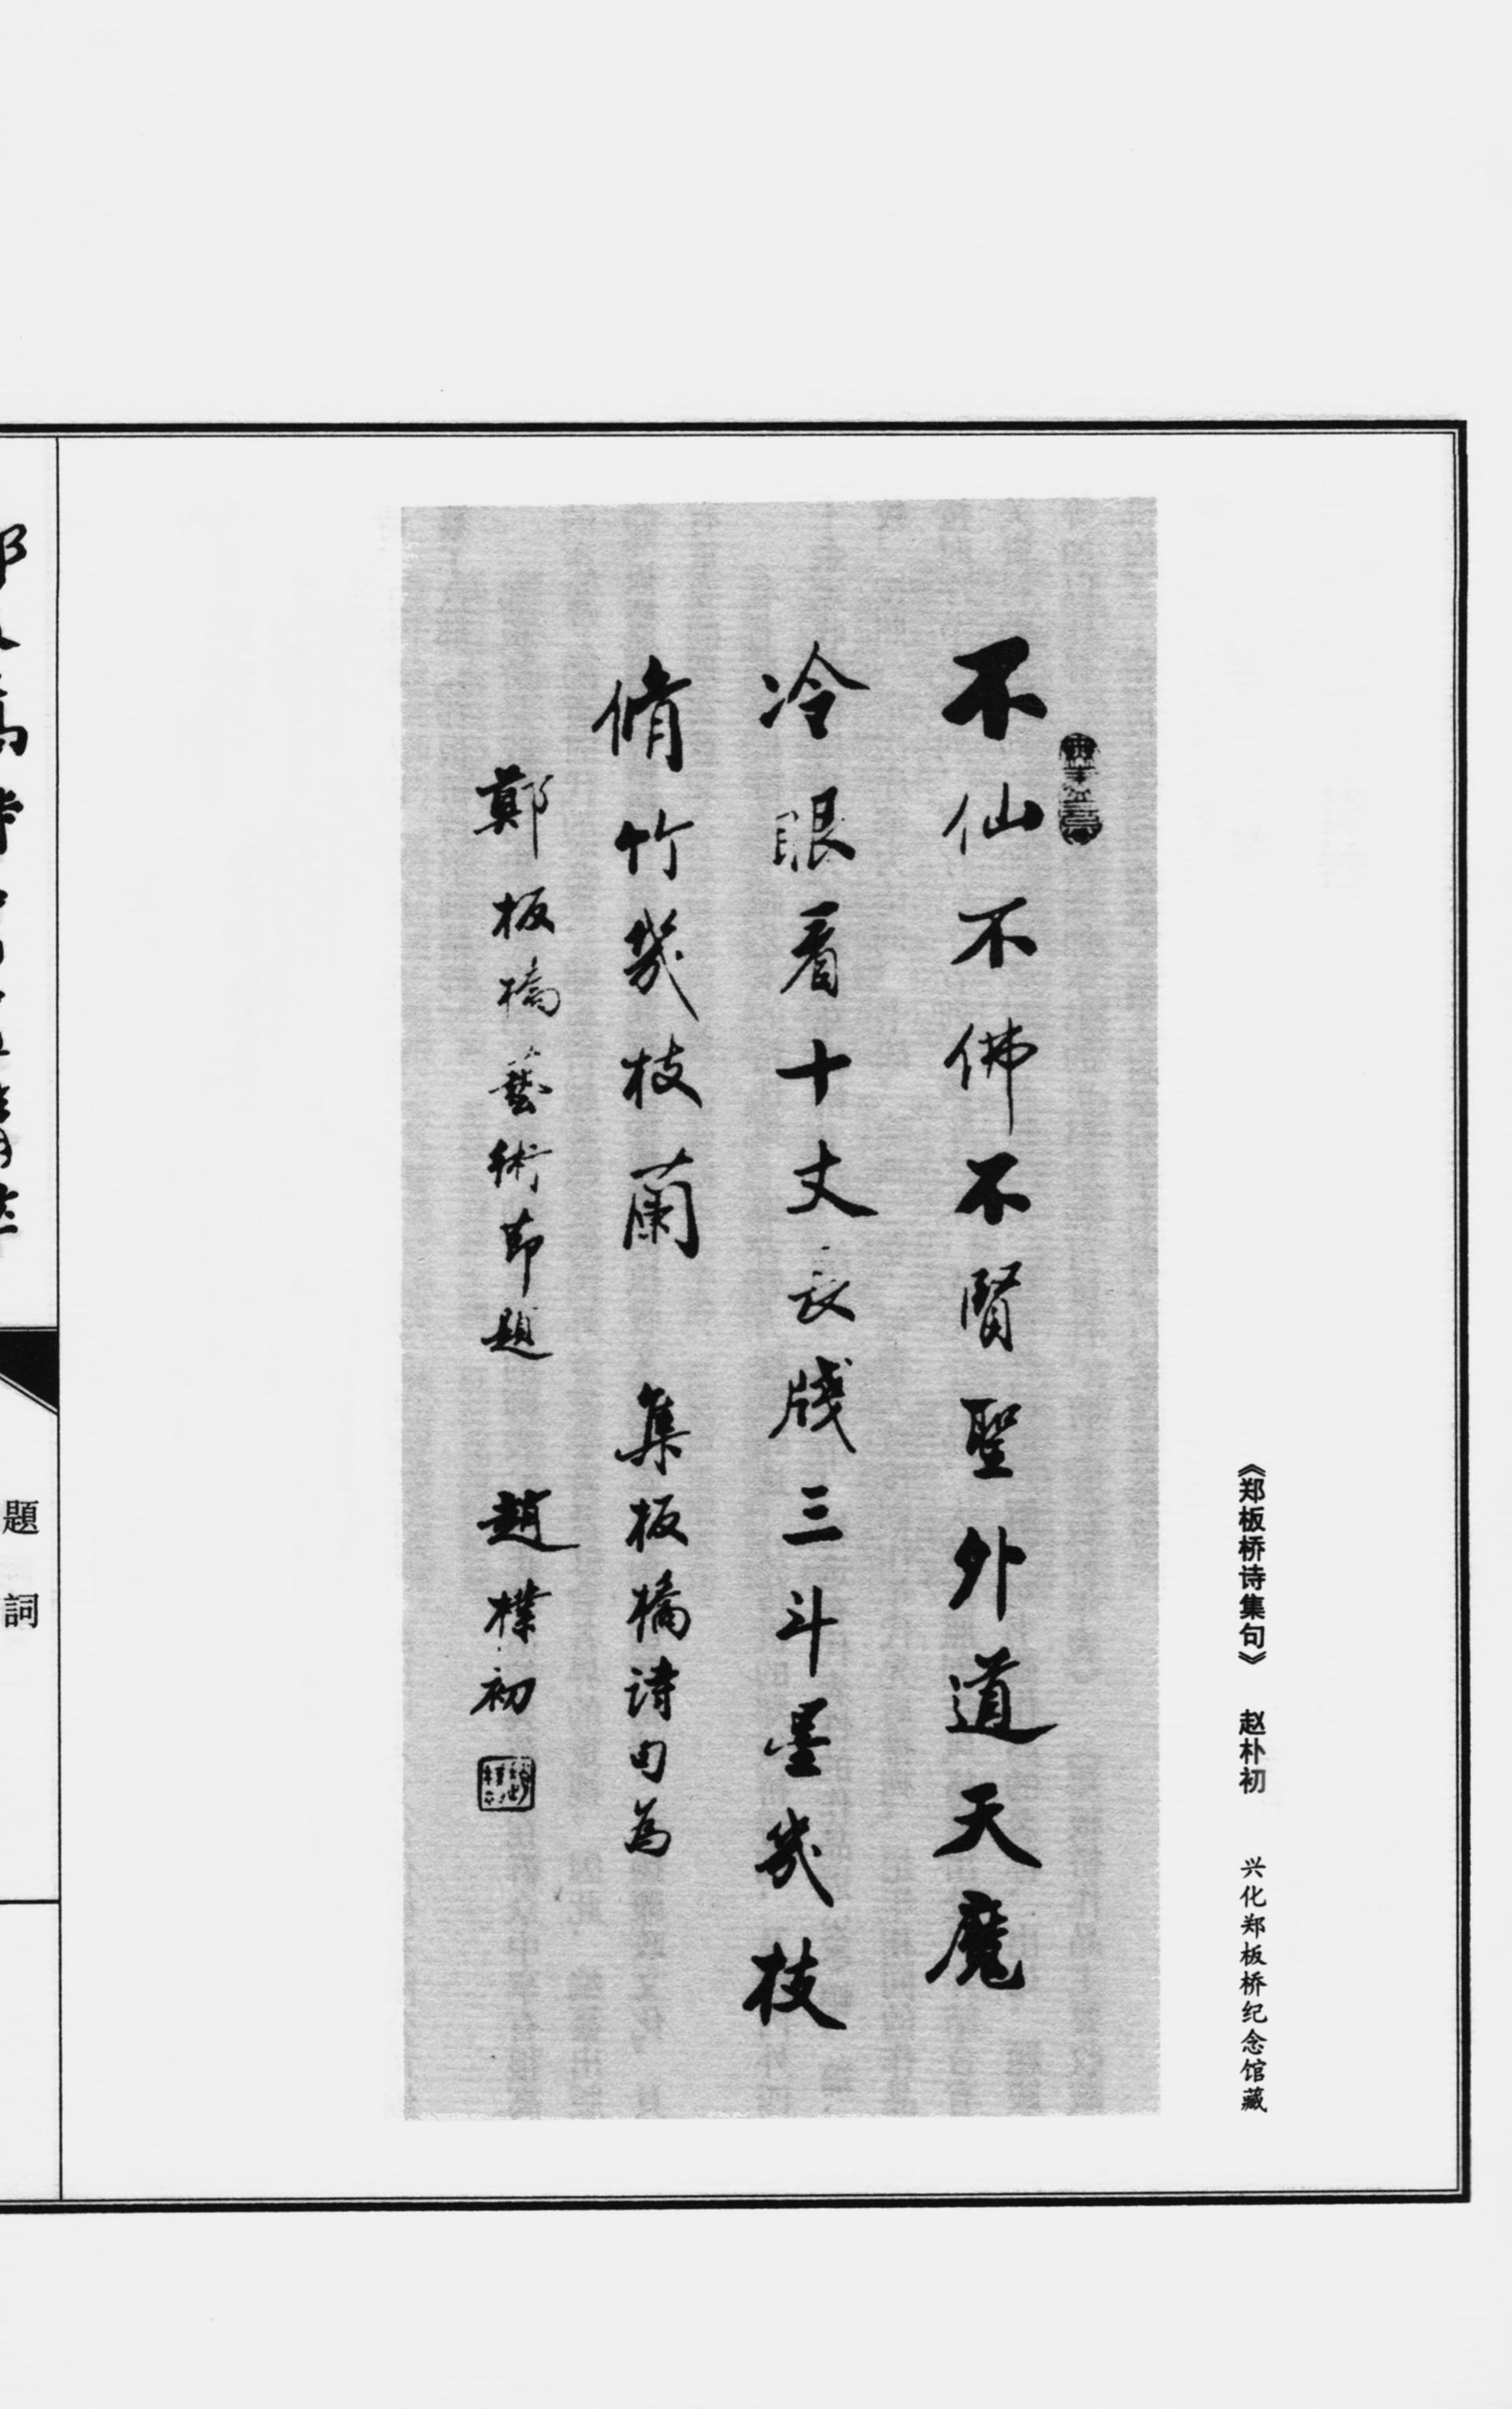 《郑板桥诗集句》 赵朴初 兴化郑板桥纪念馆藏
不仙不佛不賢聖外道天魔
冷眼看十丈長牋三斗墨幾枝
脩竹幾枝蘭 集板橋詩句為
鄭板橋藝術節題 趙樸初
題詞